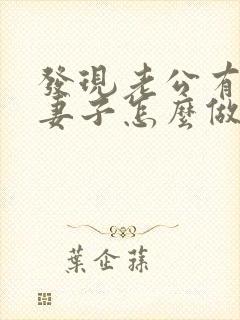 發現老公有
妻子怎麼做
葉企蓀